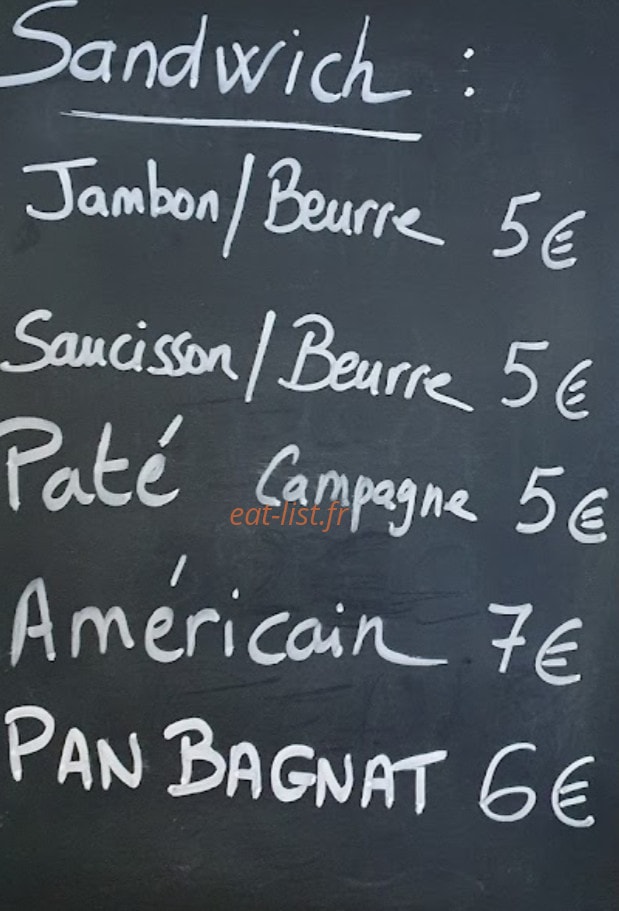 Sandwich :
Jambon/Beurre 5€
Saucisson/Beurre 5€
Paté Campagne 5€
eat-list.fr
Américain 7€
PAN BAGNAT 6€